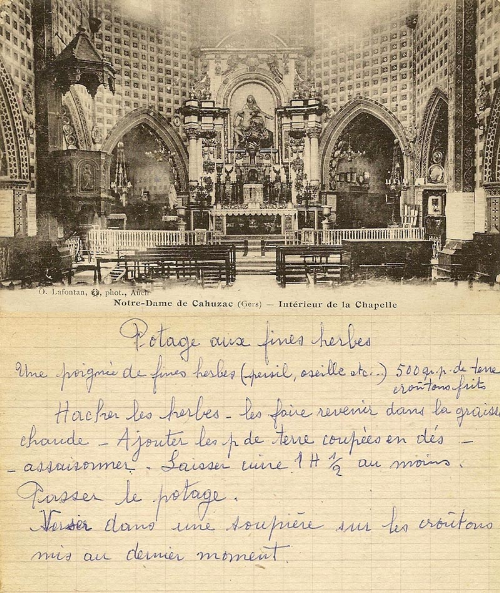 O. Lafontan, phot., Auch
Notre-Dame de Cahuzac (Gers) — Intérieur de la Chapelle
Potage aux fines herbes
Une poignée de fines herbes (persil, oseille etc..) 500 gr. p. de terre
croûtons frits
Hacher les herbes - les faire revenir dans la graisse
chaude - Ajouter les p. de terre coupées en dés -
- assaisonner. Laisser cuire 1H 1/2 au moins.
Passer le potage.
Verser dans une soupière sur les croûtons
mis au dernier moment.